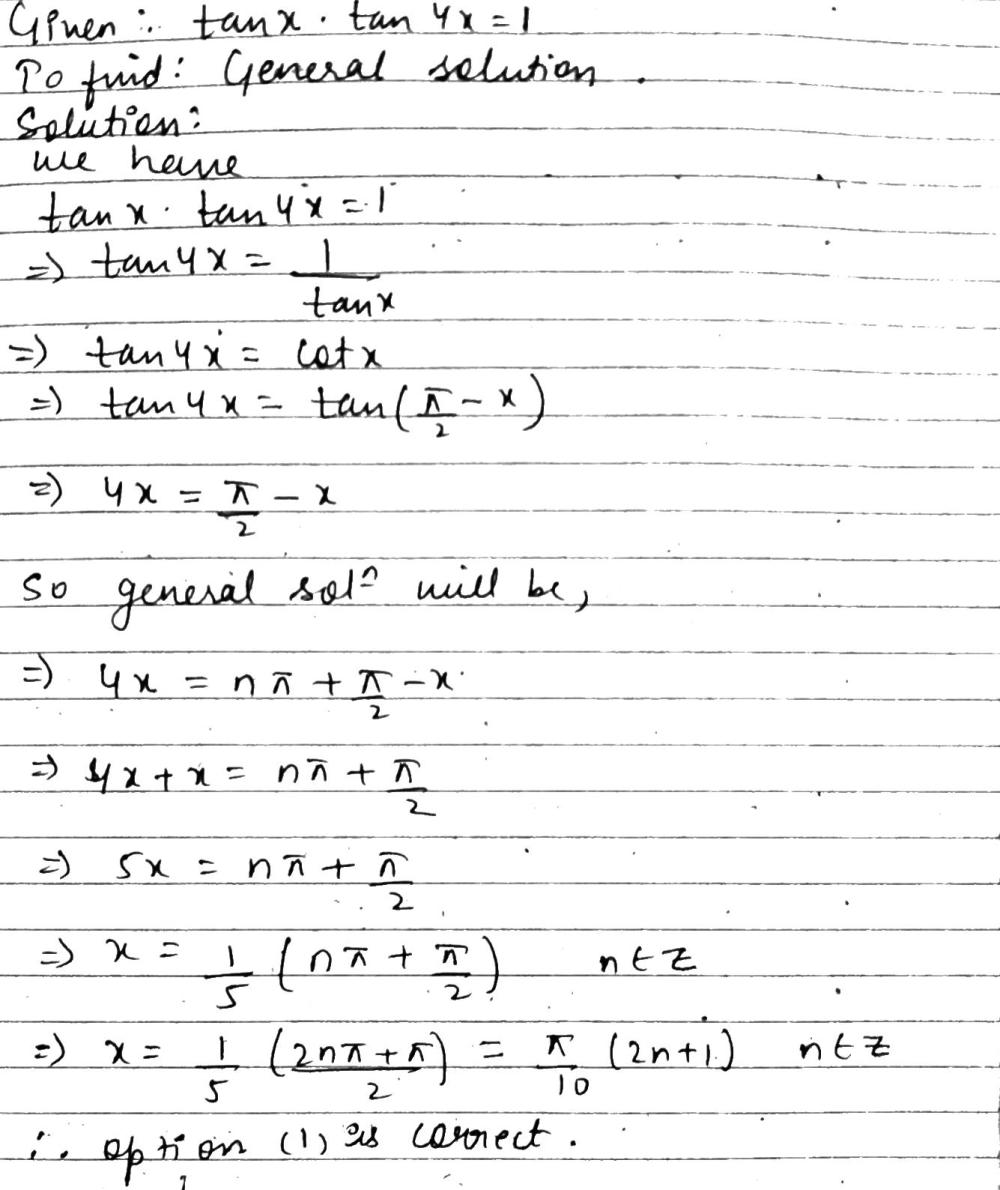 Given :. tanx . tan 4x = 1
To find : General solution .
Solution :
we have
tan x . tan 4x = 1
=> tan 4x = 1/tanx
=> tan 4x = cot x
=> tan 4x = tan(π/2 - x)
=> 4x = π/2 - x
So general solⁿ will be,
=> 4x = nπ + π/2 - x
=> 4x + x = nπ + π/2
=> 5x = nπ + π/2
=> x = 1/5 (nπ + π/2) n ∈ Z
=> x = 1/5 ((2nπ + π)/2) = π/10 (2n+1) n ∈ Z
∴ option (1) is correct .